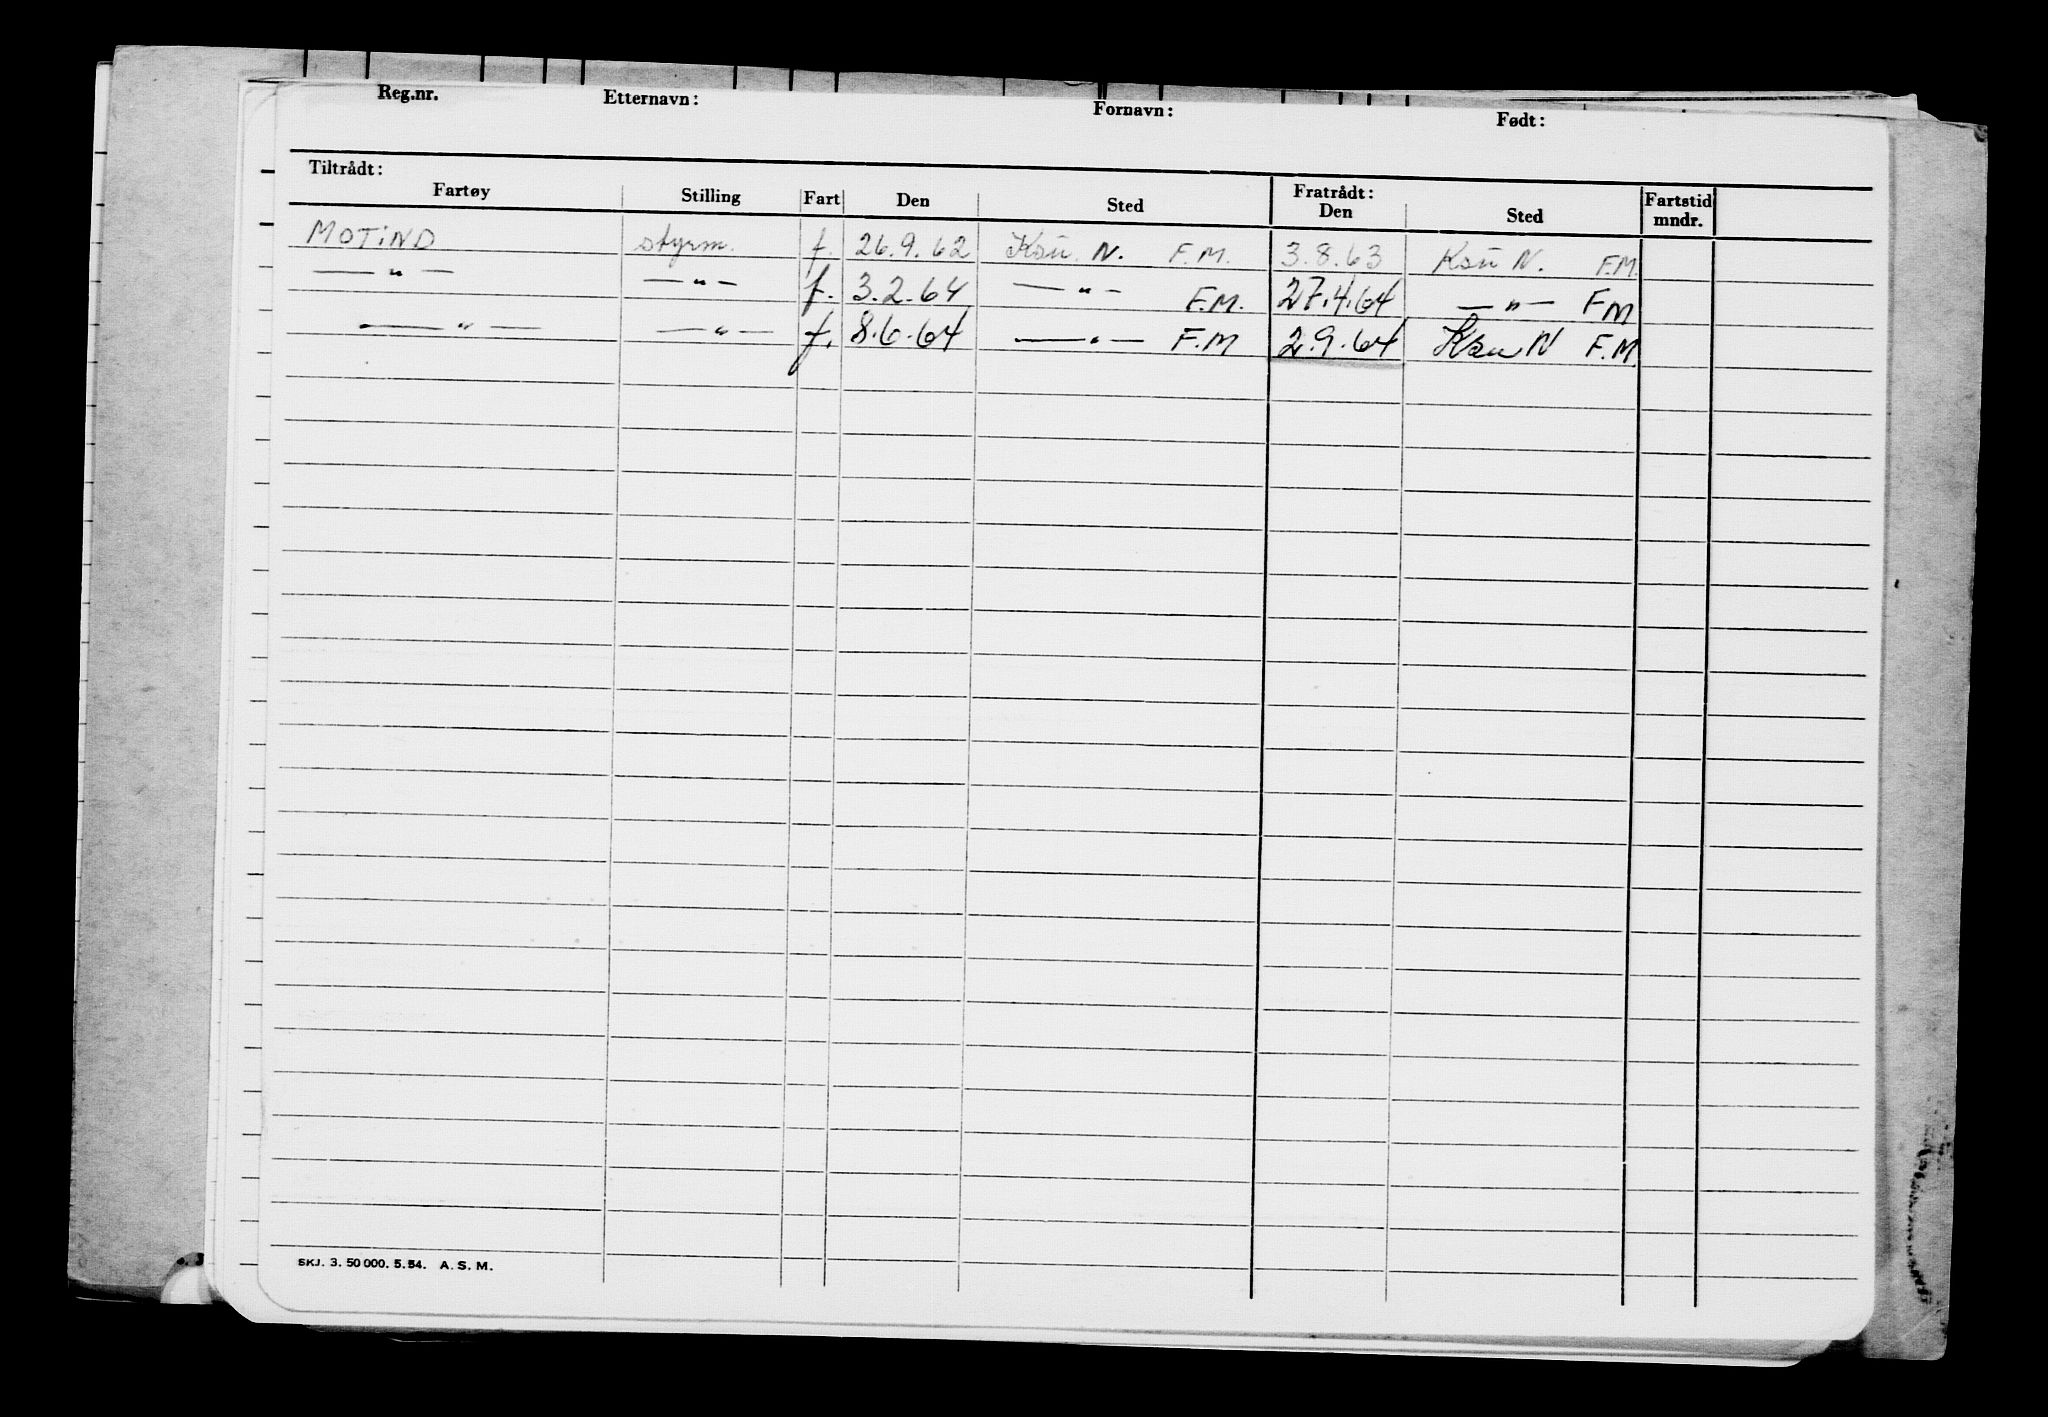 Reg.nr. Etternavn: Fornavn: Født:
Tiltrådt: Fratrådt:
Fartøy Stilling Fart Den Sted Den Sted Fartstid mndr.
MOTIND styrm. f. 26.9.62 Ksu N. F.M. 3.8.63 Ksu N. F.M.
— " — — " — f. 3.2.64 — " — F.M. 27.4.64 — " — FM
— " — — " — f. 8.6.64 — " — F.M 2.9.64 Ksu N F.M
SKJ. 3. 50 000. 5.54. A. S. M.